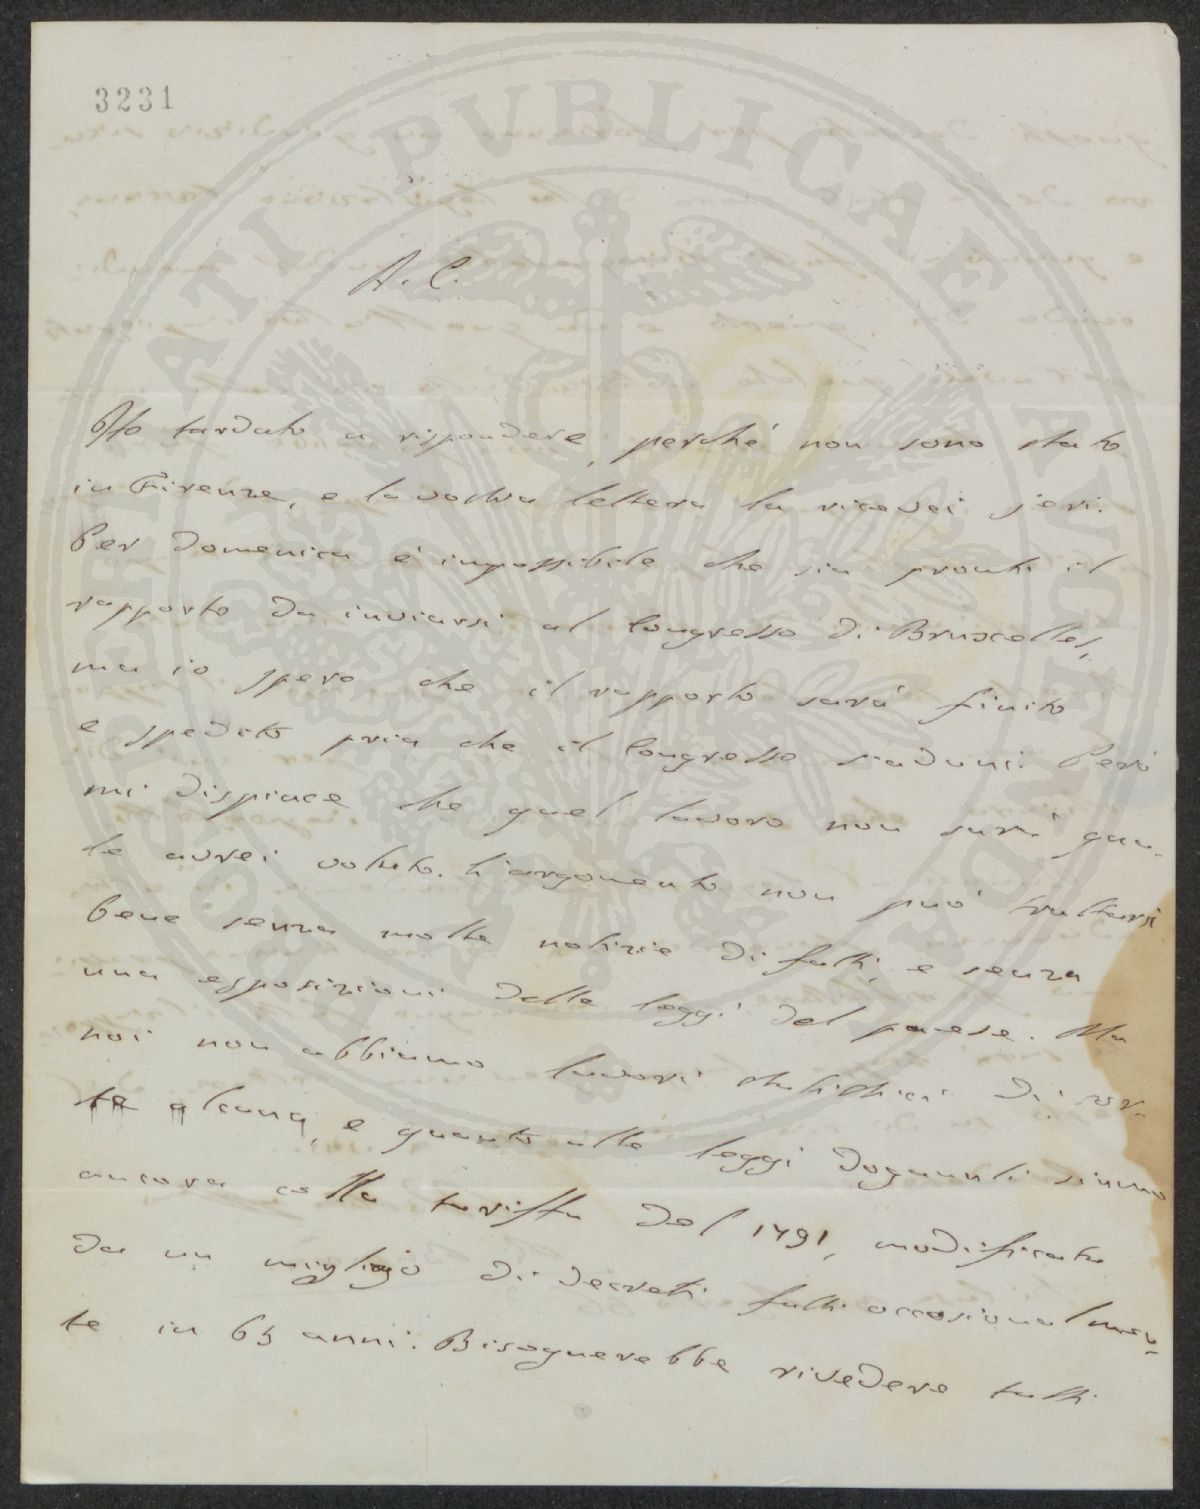 3231
A. C.
Ho tardato a rispondere, perché non sono stato
in Firenze, e la vostra lettera la ricevei jeri.
Per domenica è impossibile che sia pronto il
rapporto da inviarsi al Congresso di Bruxelles,
ma io spero che il rapporto sarà finito
e spedito pria che il Congresso siaduni. Però
mi dispiace che quel lavoro non sarà qua-
le avrei voluto. L'argomento non può trattarsi
bene senza molte notizie di fatti, e senza
una esposizioni delle leggi del paese. Ma
noi non abbiamo lavori statistici di sor-
te alcuna, e quanto alle leggi doganali siamo
ancora colla tariffa del 1791, modificata
da un migliajo di decreti fatti occasionalmen-
te in 65 anni. Bisognerebbe rivedere tutti
PIETATI PVBLICAE AVGENDAE